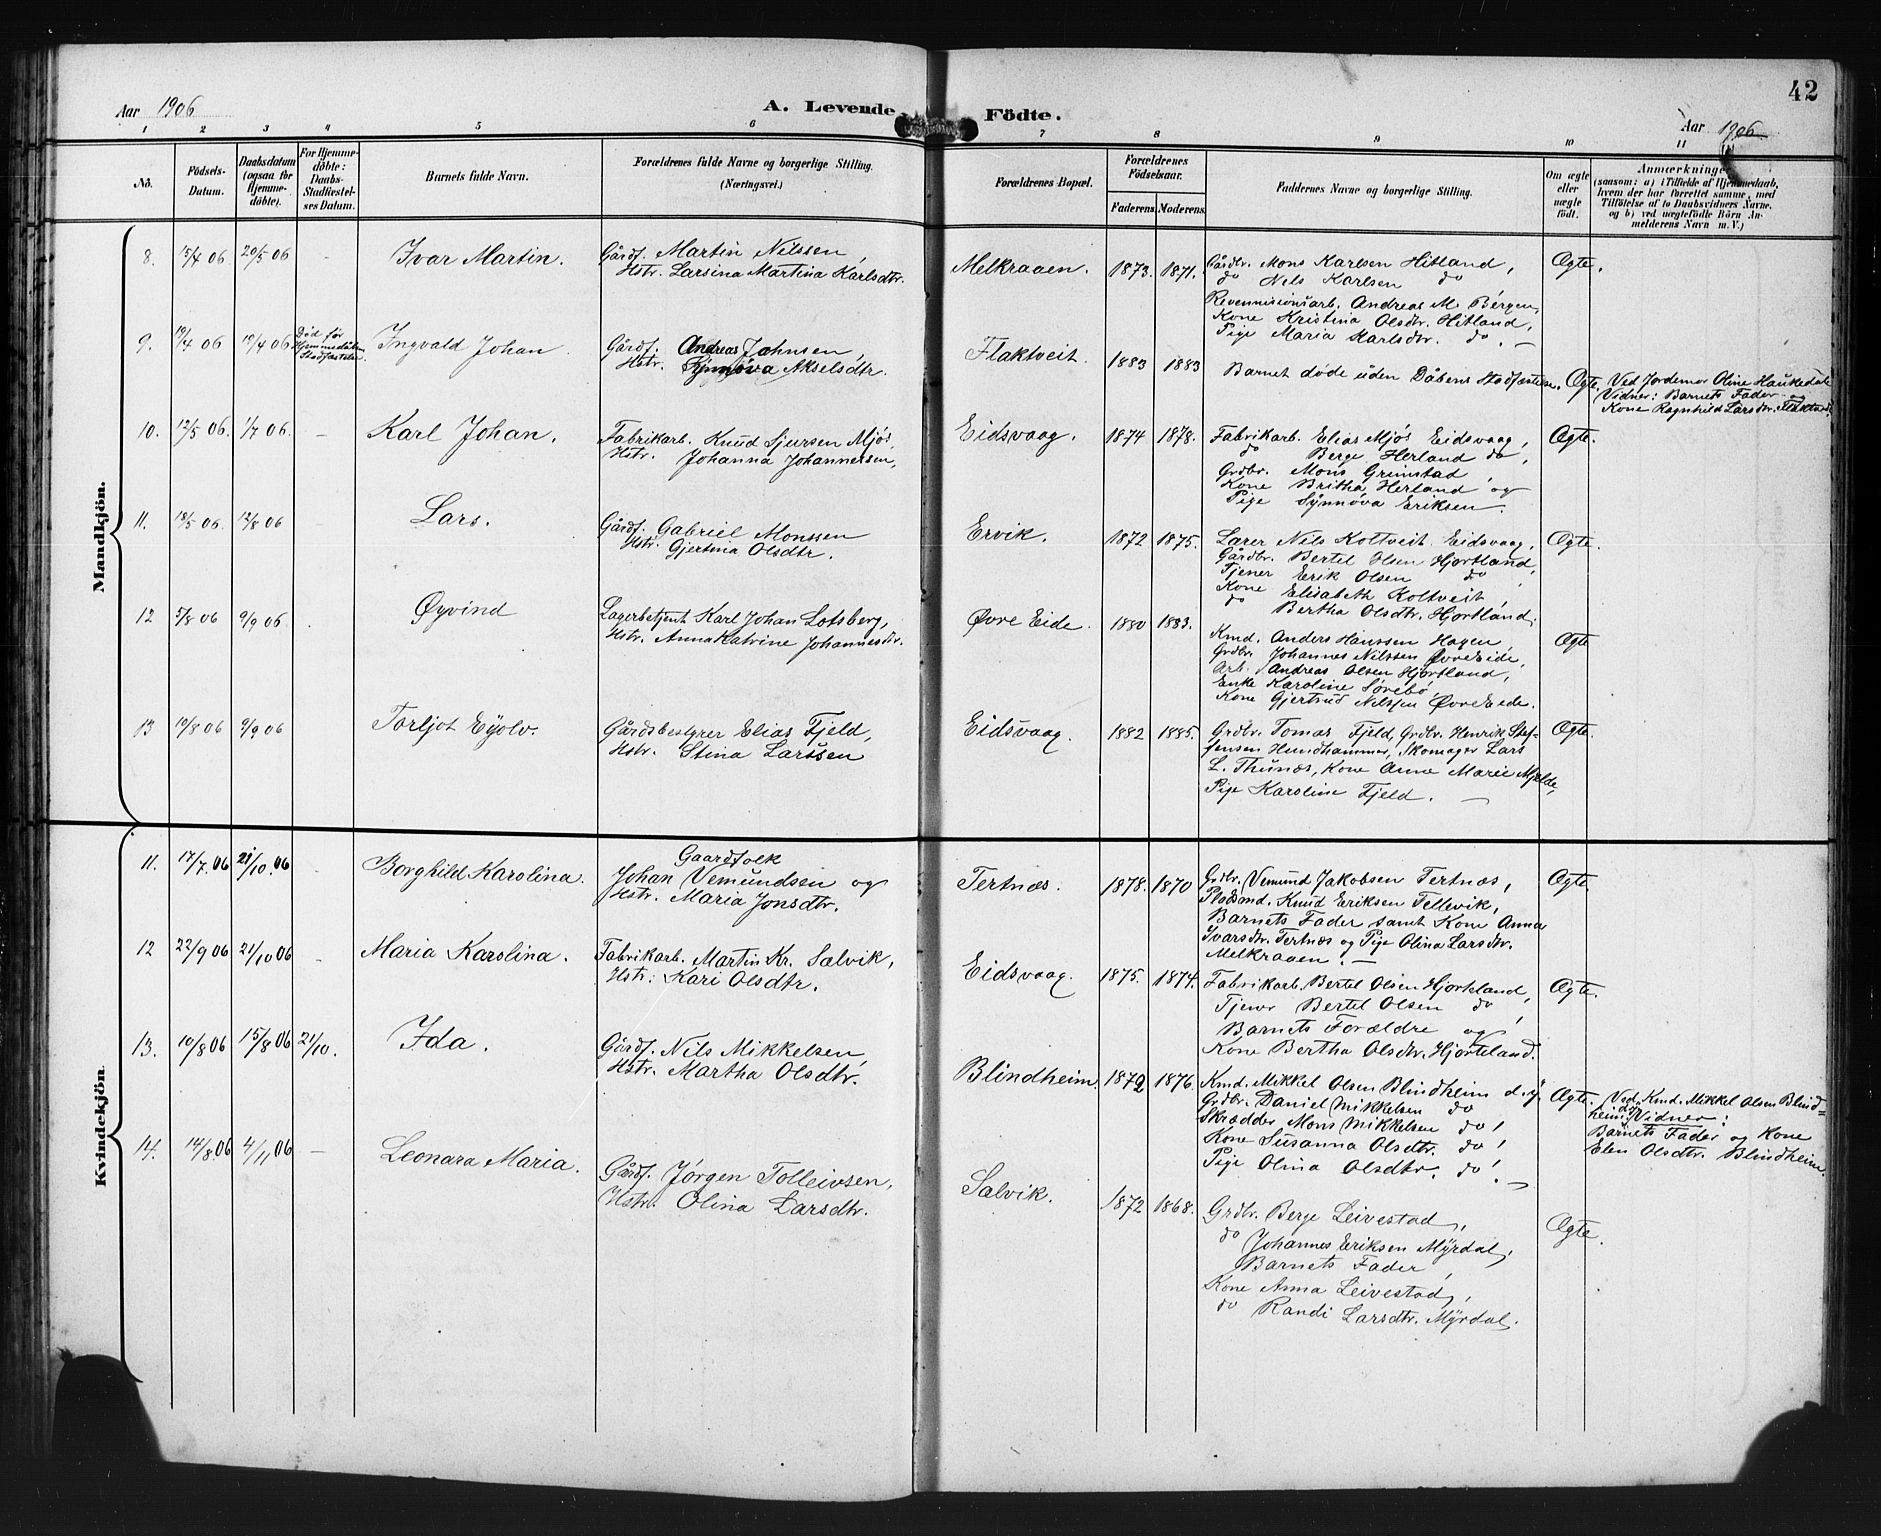 42
Aar 1906
A. Levende Födte.
Aar 1906
1 2 3 4 5 6 7 8 9 10 11
No.
Födsels-Datum.
Daabsdatum (ogsaa for Hjemme-döbte).
For Hjemme-döbte: Daabs-Stadfæstel-ses Datum.
Barnets fulde Navn.
Forældrenes fulde Navne og borgerlige Stilling.
(Næringsvei.)
Forældrenes Bopæl.
Forældrenes Födselsaar.
Faderens. Moderens.
Faddernes Navne og borgerlige Stilling.
Om ægte eller uægte födt.
Anmærkninger
(saasom: a) i Tilfælde af Hjemmedaab,
hvem der har forrettet samme, med
Tilföielse af to Daabsvidners Navne,
og b) ved uægtefödte Börn An-
melderens Navn m. V.)
Mandkjön.
8. 15/4 06 20/5 06 - Ivar Martin.
Gårdf. Martin Nilssen,
Hstr. Larsina Martina Karlsdtr.
Melkraaen. 1873. 1871.
Gårdbr. Mons Karlsen Hitland,
do Nels Karlsen do
Revenmissionsarb. Andreas M. Bergen,
Kone Kristina Olsdtr. Hitland,
Pige Maria Karlsdtr. do. —
Ægte.
9. 19/4 06 19/4 06
Död før
Hjemmedåbens
Stadfæstelse
Ingvald Johan
Gårdf. Andreas Johnsen,
Hstr. Synnøva Akselsdtr.
Flaktveit. 1883 1883
Barnet døde uden Dåbens Stadfæstelse. Ægte.
Ved Jordemor Oline Haukedale
Vidner: Barnets Fader og
Kone Ragnhild Larsdtr. Flaktveit
10. 12/5 06. 1/7 06. - Karl Johan.
Fabrikarb. Knud Sjursen Mjøs,
Hstr. Johanna Johannesen,
Eidsvaag. 1874 1878.
Fabrikarb. Elias Mjös Eidsvaag,
do Berge Herland do,
Grdbr. Mons Grimstad,
Kone Britha Herland og
Pige Synnøva Eriksen.
Ægte.
11. 18/5 06. 12/8 06 - Lars.
Gårdf. Gabriel Monssen
Hstr. Gjertina Olsdtr.
Ervik. 1872 1875.
Lærer Nils Koltveit Eidsvaag,
Gårdbr. Bertel Olsen Hjortland,
Tjener Erik Olsen do,
Kone Elisabeth Koltveit,
do Bertha Olsdtr. Hjortland.
Ægte.
12 5/8 06 9/9 06. Øyvind
Lagerbetjent Karl Johan Lotsberg,
Hstr. Anna Katrine Johannesdtr.
Øvre Eide. 1880 1883.
Kmd. Anders Hanssen Hagen,
Grdbr. Johannes Nilssen Øvre Eide,
Arb. Andreas Olsen Hjortland,
Enke Karoline Sørebö,
Kone Gjertrud Nilssen Øvre Eide.
Ægte
13 10/8 06 9/9 06 Torljot Eyolv.
Gårdsbestyrer Elias Fjeld,
Hstr. Stina Larssen
Eidsvaag. 1882 1885.
Grdbr. Tomas Fjeld, Grdbr. Henrik Stef-
fensen Hundhammer, Skomager Lars
L. Thunæs, Kone Anne Marie Mjelde,
Pige Karoline Fjeld. —
Ægte.
Kvindekjön
11. 17/7. 06 28/10. 06 - Borghild Karolina.
Gaardfolk
Johan Vemundsen og
Hstr. Maria Jonsdtr.
Tertnæs. 1878. 1870
Grdbr. Vemund Jakobsen Tertnæs,
Pladsmd. Knud Eriksen Tellevik,
Barnets Fader samt Kone Anna
Ivarsdtr. Tertnæs og Pige Olina Larsdtr.
Melkraaen. —
Ægte.
12 22/9 06 21/10 06 - Maria Karolina.
Fabrikarb. Martin Kr. Salvik,
Hstr: Kari Olsdtr.
Eidsvaag. 1875. 1874.
Fabrikarb. Bertel Olsen Hjorteland,
Tjener Bertel Olsen do,
Barnets Forældre og
Kone Bertha Olsdtr. Hjorteland.
Ægte.
13. 10/8 06 15/8 06 21/10. Ida.
Gårdf. Nils Mikkelsen,
Hstr. Martha Olsdtr.
Blindheim. 1872 1876.
Kmd. Mikkel Olsen Blindheim d.y
Grdbr. Daniel Mikkelsen do
Skrædder Mons Mikkelsen do,
Kone Susanna Olsdtr. do,
Pige Olina Olsdtr. do. —
Ægte.
Ved Kmd. Mikkel Olsen Blind=
heim, Vidner:
Barnets Fader og Kone
Elen Olsdtr. Blindheim.
14. 14/8. 06 4/11 06 - Leonara Maria.
Gårdf. Jørgen Tolleivsen,
Hstr. Olina Larsdtr.
Salvik. 1872 1868.
Grdbr. Berge Leivestad,
do Johannes Eriksen Myrdal,
Barnets Fader,
Kone Anna Leivestad,
do Randi Larsdtr. Myrdal.
Ægte.